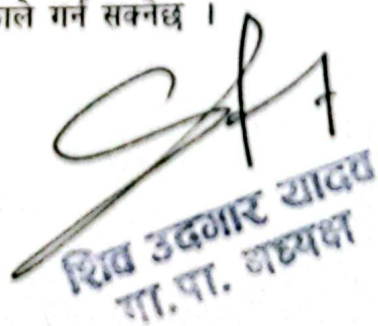 ले गर्न सक्नेछ ।
शिव उदगार यादव
गा.पा. अध्यक्ष